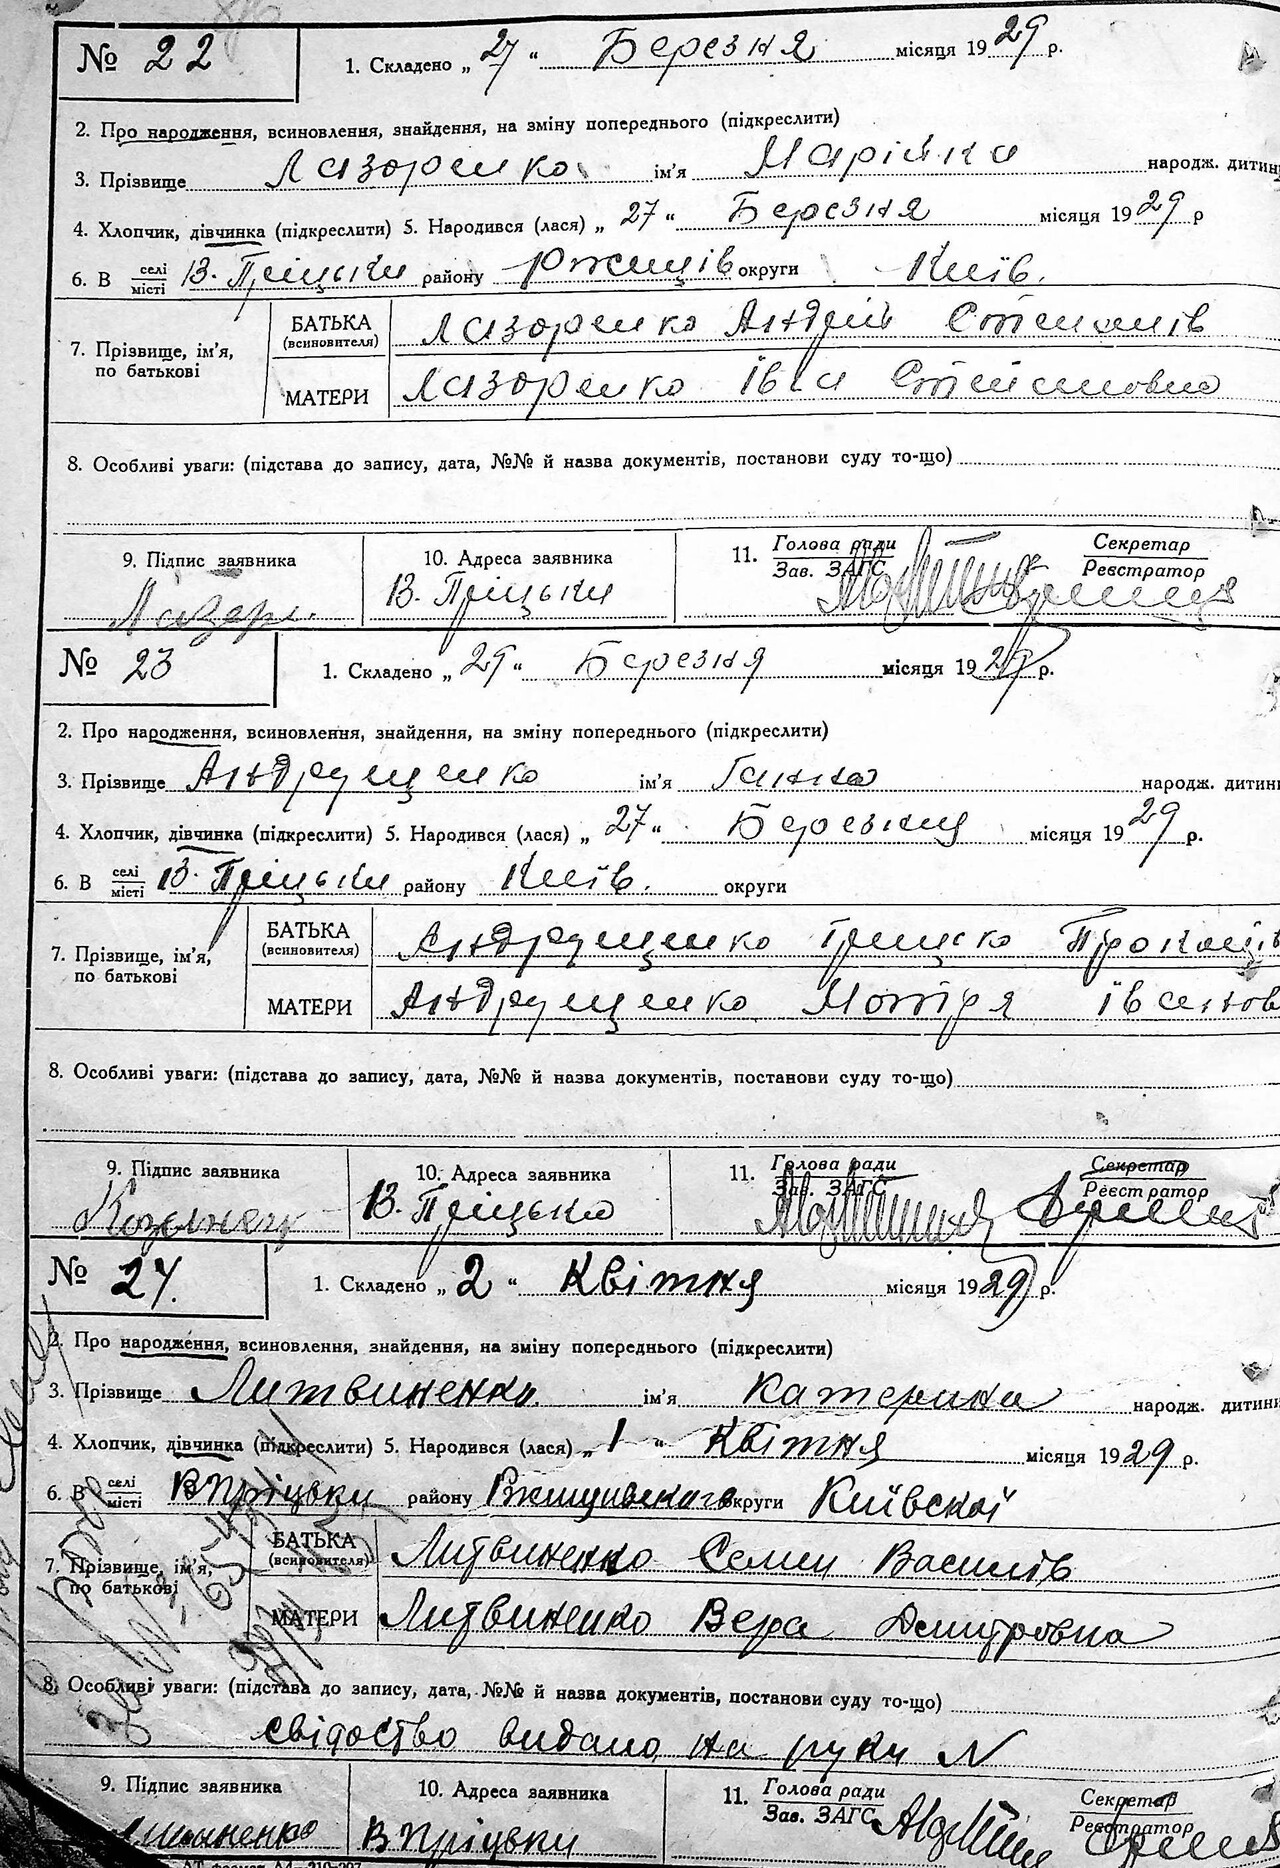 № 22
1. Складено „ 27 “ Березня місяця 1929 р.
2. Про народження, всиновлення, знайдення, на зміну попереднього (підкреслити)
3. Прізвище Лазоренко ім'я Марійка народж. дитин
4. Хлопчик, дівчинка (підкреслити) 5. Народився (лася) „ 27 “ Березня місяця 1929 р
6. В селі/місті В. Пріцьки району Ржищів округи Київ.
7. Прізвище, ім'я, по батькові
БАТЬКА (всиновителя) Лазоренко Андрій Степанів
МАТЕРИ Лазоренко Івга Степановна
8. Особливі уваги: (підстава до запису, дата, №№ й назва документів, постанови суду то-що)
9. Підпис заявника 10. Адреса заявника 11. Голова ради / Зав. ЗАГС Секретар / Реєстратор
Лазоре В. Пріцьки
№ 23
1. Складено „ 29 “ Березня місяця 1929 р.
2. Про народження, всиновлення, знайдення, на зміну попереднього (підкреслити)
3. Прізвище Андрущенко ім'я Ганна народж. дитини
4. Хлопчик, дівчинка (підкреслити) 5. Народився (лася) „ 27 “ Березня місяця 1929 р.
6. В селі/місті В. Пріцьки району Київ. округи
7. Прізвище, ім'я, по батькові
БАТЬКА (всиновителя) Андрущенко Грицько
МАТЕРИ Андрущенко Мотря
8. Особливі уваги: (підстава до запису, дата, №№ й назва документів, постанови суду то-що)
9. Підпис заявника 10. Адреса заявника 11. Голова ради / Зав. ЗАГС Секретар / Реєстратор
В. Пріцько
№ 24.
1. Складено „ 2 “ Квітня місяця 1929 р.
2. Про народження, всиновлення, знайдення, на зміну попереднього (підкреслити)
3. Прізвище Литвиненко ім'я Катерина народж. дитини
4. Хлопчик, дівчинка (підкреслити) 5. Народився (лася) „ 1 “ Квітня місяця 1929 р.
6. В селі/місті В Пріцьки району округи Київскої
7. Прізвище, ім'я, по батькові
БАТЬКА (всиновителя) Литвиненко Семен Василів
МАТЕРИ Литвиненко Вера Дмитровна
8. Особливі уваги: (підстава до запису, дата, №№ й назва документів, постанови суду то-що)
свідоство видано на руки N
9. Підпис заявника 10. Адреса заявника 11. Голова ради / Зав. ЗАГС Секретар / Реєстратор
В Пріцьки